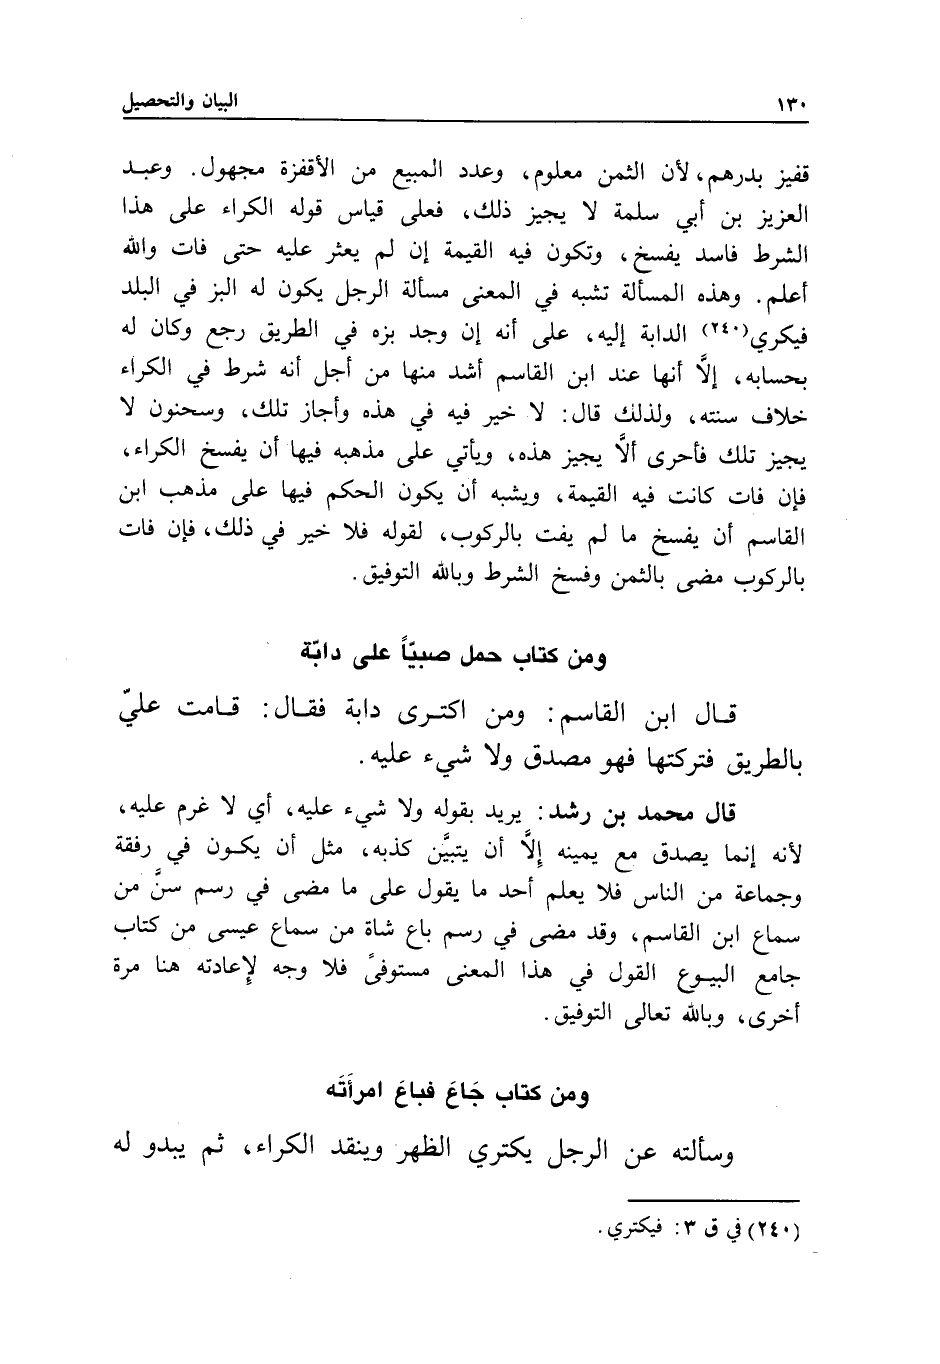 ١٣٠ البيان والتحصيل
قفيز بدرهم، لأن الثمن معلوم، وعدد المبيع من الأقفزة مجهول. وعبد
العزيز بن أبي سلمة لا يجيز ذلك، فعلى قياس قوله الكراء على هذا
الشرط فاسد يفسخ، وتكون فيه القيمة إن لم يعثر عليه حتى فات والله
أعلم. وهذه المسألة تشبه في المعنى مسألة الرجل يكون له البز في البلد
فيكري(٢٤٠) الدابة إليه، على أنه إن وجد بزه في الطريق رجع وكان له
بحسابه، إلَّا أنها عند ابن القاسم أشد منها من أجل أنه شرط في الكراء
خلاف سنته، ولذلك قال: لا خير فيه في هذه وأجاز تلك، وسحنون لا
يجيز تلك فأحرى ألَّا يجيز هذه، ويأتي على مذهبه فيها أن يفسخ الكراء،
فإن فات كانت فيه القيمة، ويشبه أن يكون الحكم فيها على مذهب ابن
القاسم أن يفسخ ما لم يفت بالركوب، لقوله فلا خير في ذلك، فإن فات
بالركوب مضى بالثمن وفسخ الشرط وبالله التوفيق.
ومن كتاب حمل صبيّاً على دابّة
قال ابن القاسم: ومن اكترى دابة فقال: قامت عليّ
بالطريق فتركتها فهو مصدق ولا شيء عليه.
قال محمد بن رشد: يريد بقوله ولا شيء عليه، أي لا غرم عليه،
لأنه إنما يصدق مع يمينه إلَّا أن يتبيَّن كذبه، مثل أن يكون في رفقة
وجماعة من الناس فلا يعلم أحد ما يقول على ما مضى في رسم سنَّ من
سماع ابن القاسم، وقد مضى في رسم باع شاة من سماع عيسى من كتاب
جامع البيوع القول في هذا المعنى مستوفىً فلا وجه لإعادته هنا مرة
أخرى، وبالله تعالى التوفيق.
ومن كتاب جَاعَ فباعَ امرأَتَه
وسألته عن الرجل يكتري الظهر وينقد الكراء، ثم يبدو له
(٢٤٠) في ق ٣: فيكتري.